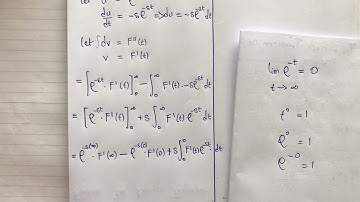 let u = e^{-st}
du/dt = -se^{-st} => du = -se^{-st} dt
let ∫dv = F''(t)
v = F'(t)
= [e^{-st} · F'(t)]_0^∞ - ∫_0^∞ F'(t) · -se^{-st} dt
= [e^{-st} · F'(t)]_0^∞ + s ∫_0^∞ F'(t) e^{-st} dt
= e^{-s(∞)} · F'(∞) - e^{-s(0)} · F'(0) + s ∫_0^∞ F'(t) e^{-st} dt
lim e^{-t} = 0
t → ∞
t^0 = 1
e^0 = 1
e^{-0} = 1